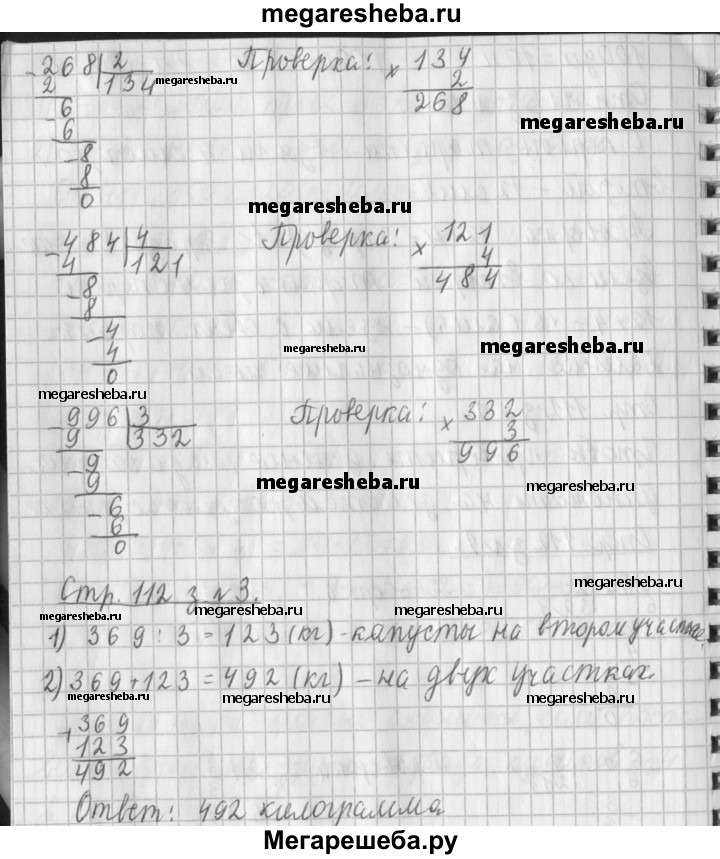 megaresheba.ru
-268|2 Проверка: ×134
2 134 megaresheba.ru 2
-6 268
6 megaresheba.ru
-8
8
0 megaresheba.ru
-484|4 Проверка: ×121
4 121 4
-8 484
8
-4 megaresheba.ru megaresheba.ru
4
0
megaresheba.ru
-996|3 Проверка: ×332
9 332 3
-9 996
9 megaresheba.ru megaresheba.ru
-6
6
0
megaresheba.ru
Стр. 112 з №3.
megaresheba.ru megaresheba.ru megaresheba.ru
1) 369 : 3 = 123 (кг) - капусты на втором участке.
2) 369 + 123 = 492 (кг) - на двух участках.
megaresheba.ru megaresheba.ru megaresheba.ru
+369
123
492
Ответ: 492 килограмма
Мегарешеба.ру